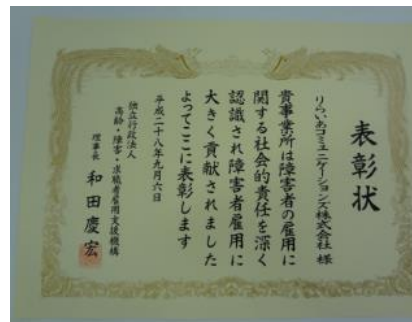 表彰状
りらいあコミュニケーションズ株式会社 様
貴事業所は障害者の雇用に
関する社会的責任を深く
認識され障害者雇用に
大きく貢献されました
よってここに表彰します
平成二十八年九月六日
独立行政法人
高齢・障害・求職者雇用支援機構
理事長 和田慶宏